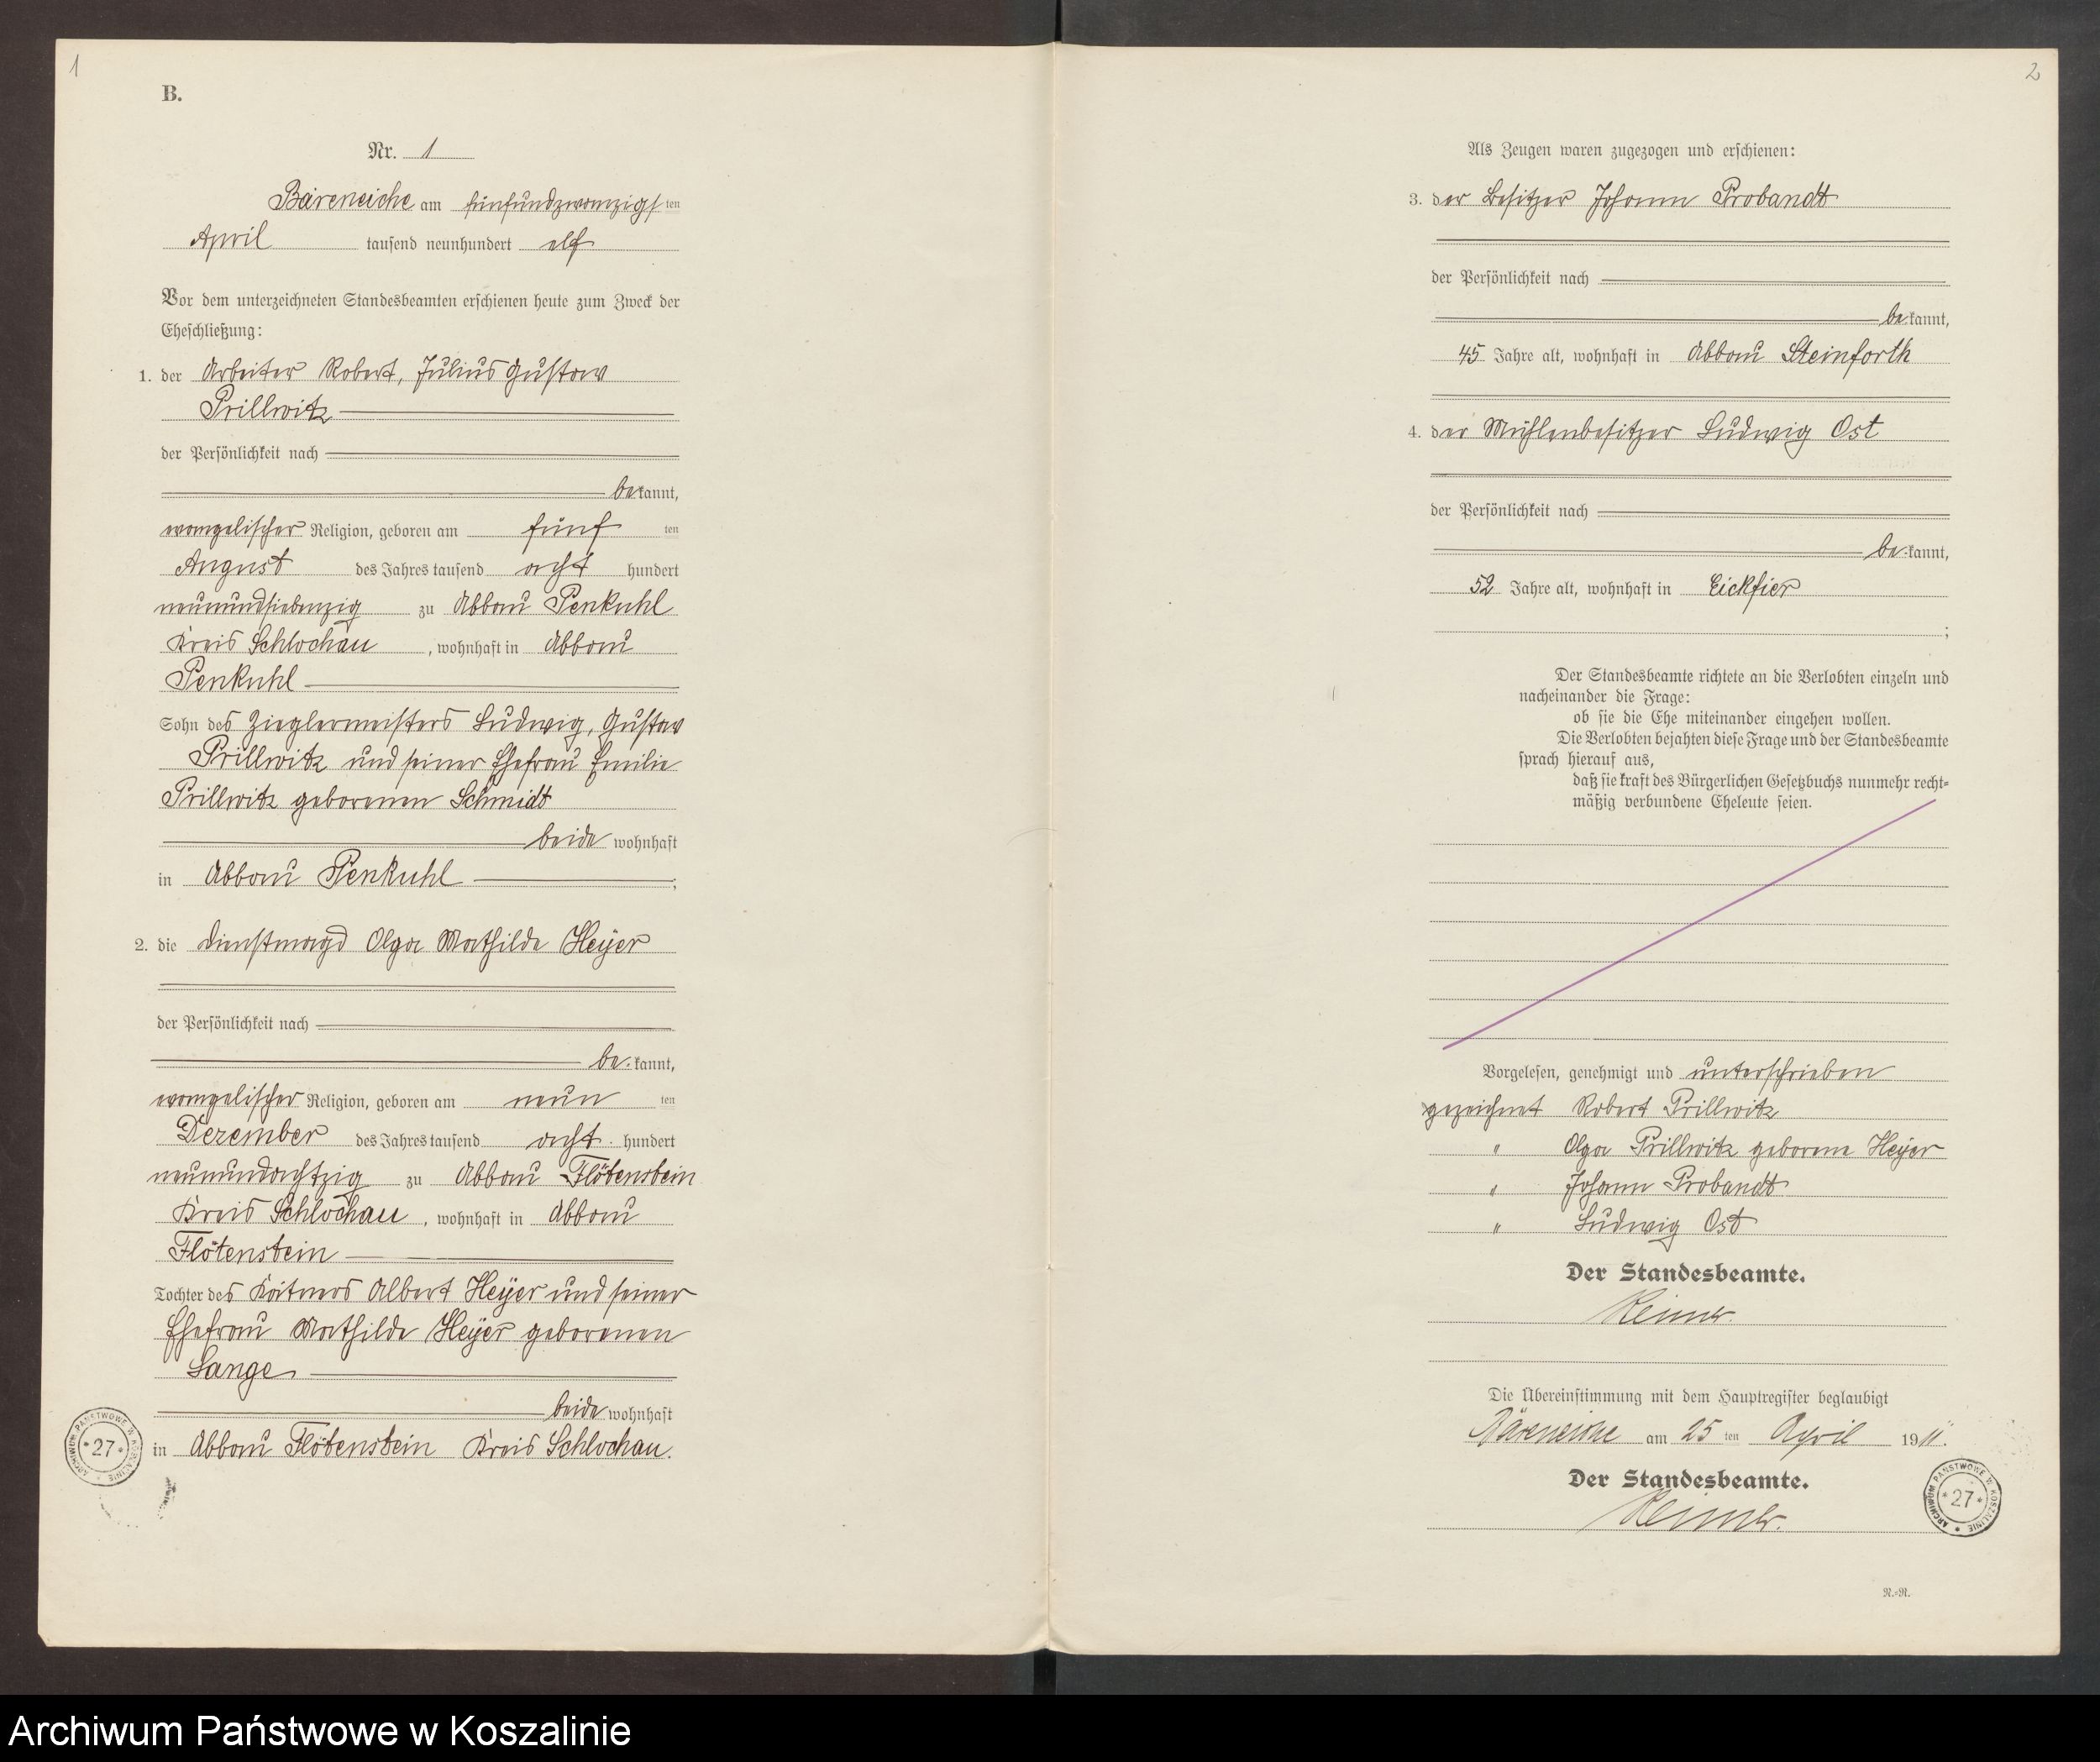 1
B.
Nr. 1
Bäreneiche am fünfundzwanzigsten
April tausend neunhundert elf
Vor dem unterzeichneten Standesbeamten erschienen heute zum Zweck der
Eheschließung:
1. der Arbeiter Robert, Julius Gustav
Prillwitz
der Persönlichkeit nach
bekannt,
evangelischer Religion, geboren am fünf ten
August des Jahres tausend acht hundert
neunundsiebenzig zu Abbau Penkuhl
Kreis Schlochau, wohnhaft in Abbau
Penkuhl
Sohn des Zieglermeisters Ludwig, Gustav
Prillwitz und seiner Ehefrau Emilie
Prillwitz geborenen Schmidt
beide wohnhaft
in Abbau Penkuhl;
2. die Dienstmagd Olga Mathilde Heyer
der Persönlichkeit nach
bekannt,
evangelischer Religion, geboren am neun ten
Dezember des Jahres tausend acht hundert
neunundachtzig zu Abbau Flötenstein
Kreis Schlochau, wohnhaft in Abbau
Flötenstein
Tochter des Kätners Albert Heyer und seiner
Ehefrau Mathilde Heyer geborenen
Lange
beide wohnhaft
in Abbau Flötenstein Kreis Schlochau.
ARCHIWUM PAŃSTWOWE W KOSZALINIE * 27 *
2
Als Zeugen waren zugezogen und erschienen:
3. der Besitzer Johann Probandt
der Persönlichkeit nach
bekannt,
45 Jahre alt, wohnhaft in Abbau Steinforth
4. der Mühlenbesitzer Ludwig Ost
der Persönlichkeit nach
bekannt,
52 Jahre alt, wohnhaft in Eickfier
;
Der Standesbeamte richtete an die Verlobten einzeln und
nacheinander die Frage:
ob sie die Ehe miteinander eingehen wollen.
Die Verlobten bejahten diese Frage und der Standesbeamte
sprach hierauf aus,
daß sie kraft des Bürgerlichen Gesetzbuchs nunmehr recht-
mäßig verbundene Eheleute seien.
Vorgelesen, genehmigt und unterschrieben
gezeichnet Robert Prillwitz
" Olga Prillwitz geborene Heyer
" Johann Probandt
" Ludwig Ost
Der Standesbeamte.
Die Übereinstimmung mit dem Hauptregister beglaubigt
Bäreneiche am 25 ten April 1911.
Der Standesbeamte.
ARCHIWUM PAŃSTWOWE W KOSZALINIE * 27 *
N.-N.
Archiwum Państwowe w Koszalinie